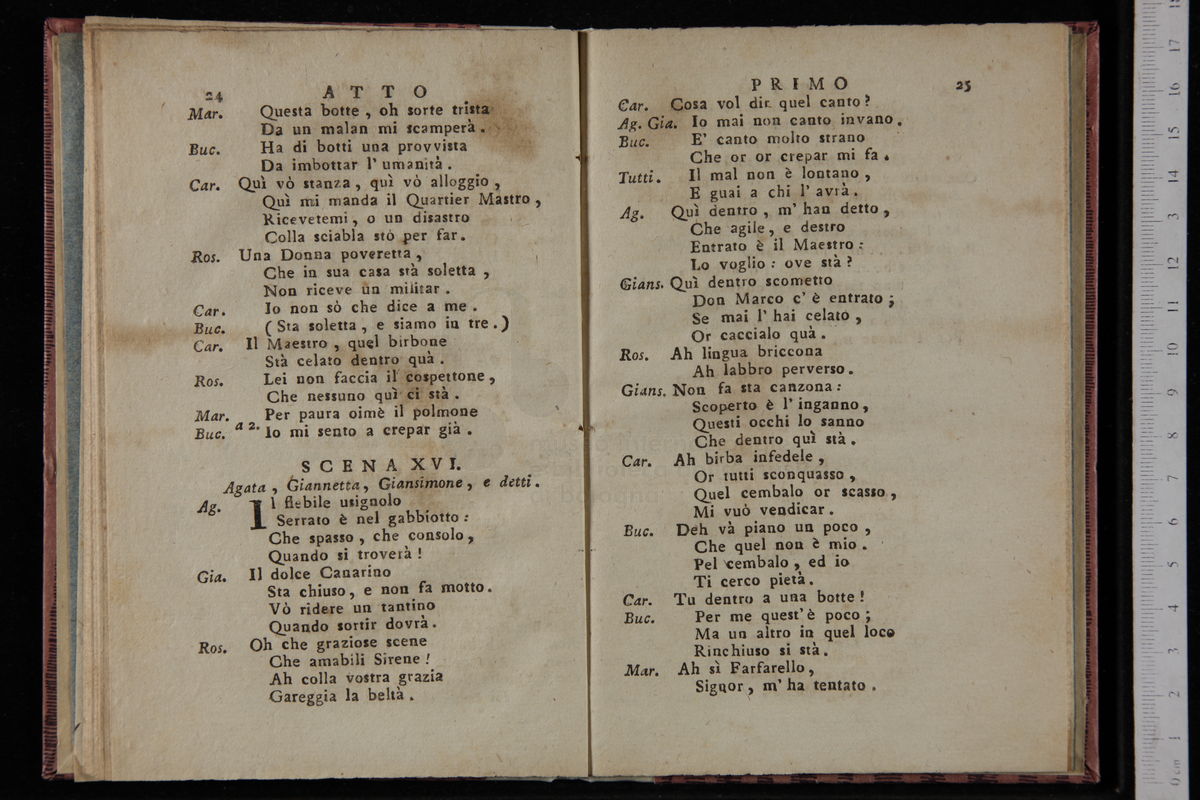 24 ATTO
Mar. Questa botte , oh sorte trista
Da un malan mi scamperà .
Buc. Ha di botti una provvista
Da imbottar l' umanità .
Car. Quì vò stanza , quì vò alloggio ,
Quì mi manda il Quartier Mastro ,
Ricevetemi , o un disastro
Colla sciabla stò per far .
Ros. Una Donna poveretta ,
Che in sua casa stà soletta ,
Non riceve un militar .
Car. Io non sò che dice a me .
Buc. ( Sta soletta , e siamo in tre . )
Car. Il Maestro , quel birbone
Stà celato dentro quà .
Ros. Lei non faccia il cospettone ,
Che nessuno quì ci stà .
Mar. Per paura oimè il polmone
Buc. a 2. Io mi sento a crepar già .
SCENA XVI.
Agata , Giannetta , Giansimone , e detti .
Ag. Il flebile usignolo
Serrato è nel gabbiotto :
Che spasso , che consolo ,
Quando si troverà !
Gia. Il dolce Canarino
Sta chiuso , e non fa motto .
Vò ridere un tantino
Quando sortir dovrà .
Ros. Oh che graziose scene
Che amabili Sirene !
Ah colla vostra grazia
Gareggia la beltà .
PRIMO 25
Car. Cosa vol dir quel canto ?
Ag. Gia. Io mai non canto invano .
Buc. E' canto molto strano
Che or or crepar mi fa .
Tutti . Il mal non è lontano ,
E guai a chi l' avrà .
Ag. Quì dentro , m' han detto ,
Che agile , e destro
Entrato è il Maestro :
Lo voglio : ove stà ?
Gians. Quì dentro scometto
Don Marco c' è entrato ;
Se mai l' hai celato ,
Or caccialo quà .
Ros. Ah lingua briccona
Ah labbro perverso .
Gians. Non fa sta canzona :
Scoperto è l' inganno ,
Questi occhi lo sanno
Che dentro quì stà .
Car. Ah birba infedele ,
Or tutti sconquasso ,
Quel cembalo or scasso ,
Mi vuò vendicar .
Buc. Deh và piano un poco ,
Che quel non è mio .
Pel cembalo , ed io
Ti cerco pietà .
Car. Tu dentro a una botte !
Buc. Per me quest' è poco ;
Ma un altro in quel loco
Rinchiuso si stà .
Mar. Ah sì Farfarello ,
Signor , m' ha tentato .